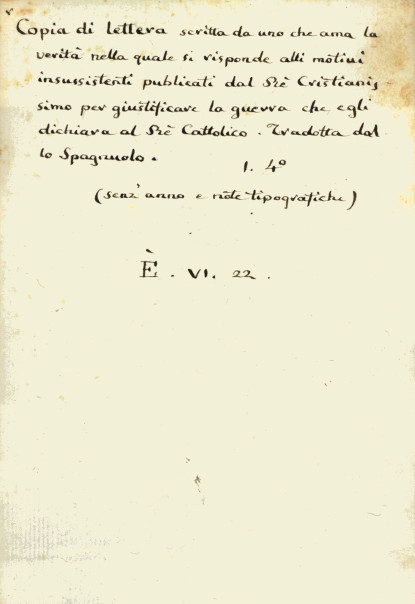 Copia di lettera scritta da uno che ama la
verità nella quale si risponde alli motiui
insussistenti publicati dal Rè Cristianis
simo per giustificare la guerra che egli
dichiara al Rè Cattolico. Tradotta dal
lo Spagnuolo.
1. 4º
(senz'anno e note tipografiche)
È. VI. 22.